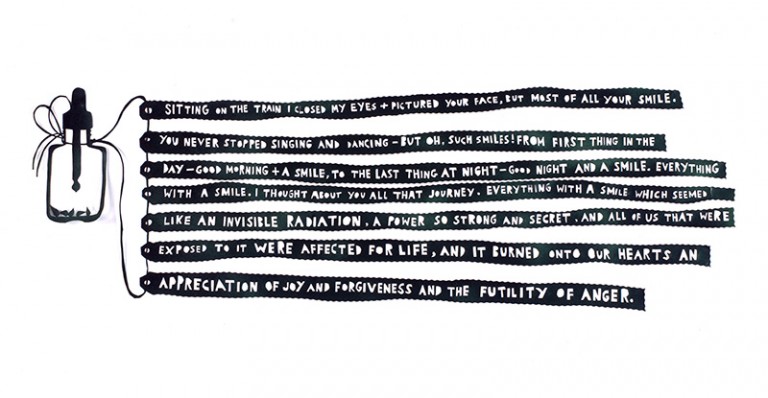 SITTING ON THE TRAIN I CLOSED MY EYES + PICTURED YOUR FACE, BUT MOST OF ALL YOUR SMILE.
YOU NEVER STOPPED SINGING AND DANCING - BUT OH, SUCH SMILES! FROM FIRST THING IN THE
DAY - GOOD MORNING + A SMILE, TO THE LAST THING AT NIGHT - GOOD NIGHT AND A SMILE. EVERYTHING
WITH A SMILE. I THOUGHT ABOUT YOU ALL THAT JOURNEY. EVERYTHING WITH A SMILE WHICH SEEMED
LIKE AN INVISIBLE RADIATION. A POWER SO STRONG AND SECRET. AND ALL OF US THAT WERE
EXPOSED TO IT WERE AFFECTED FOR LIFE, AND IT BURNED ONTO OUR HEARTS AN
APPRECIATION OF JOY AND FORGIVENESS AND THE FUTILITY OF ANGER.